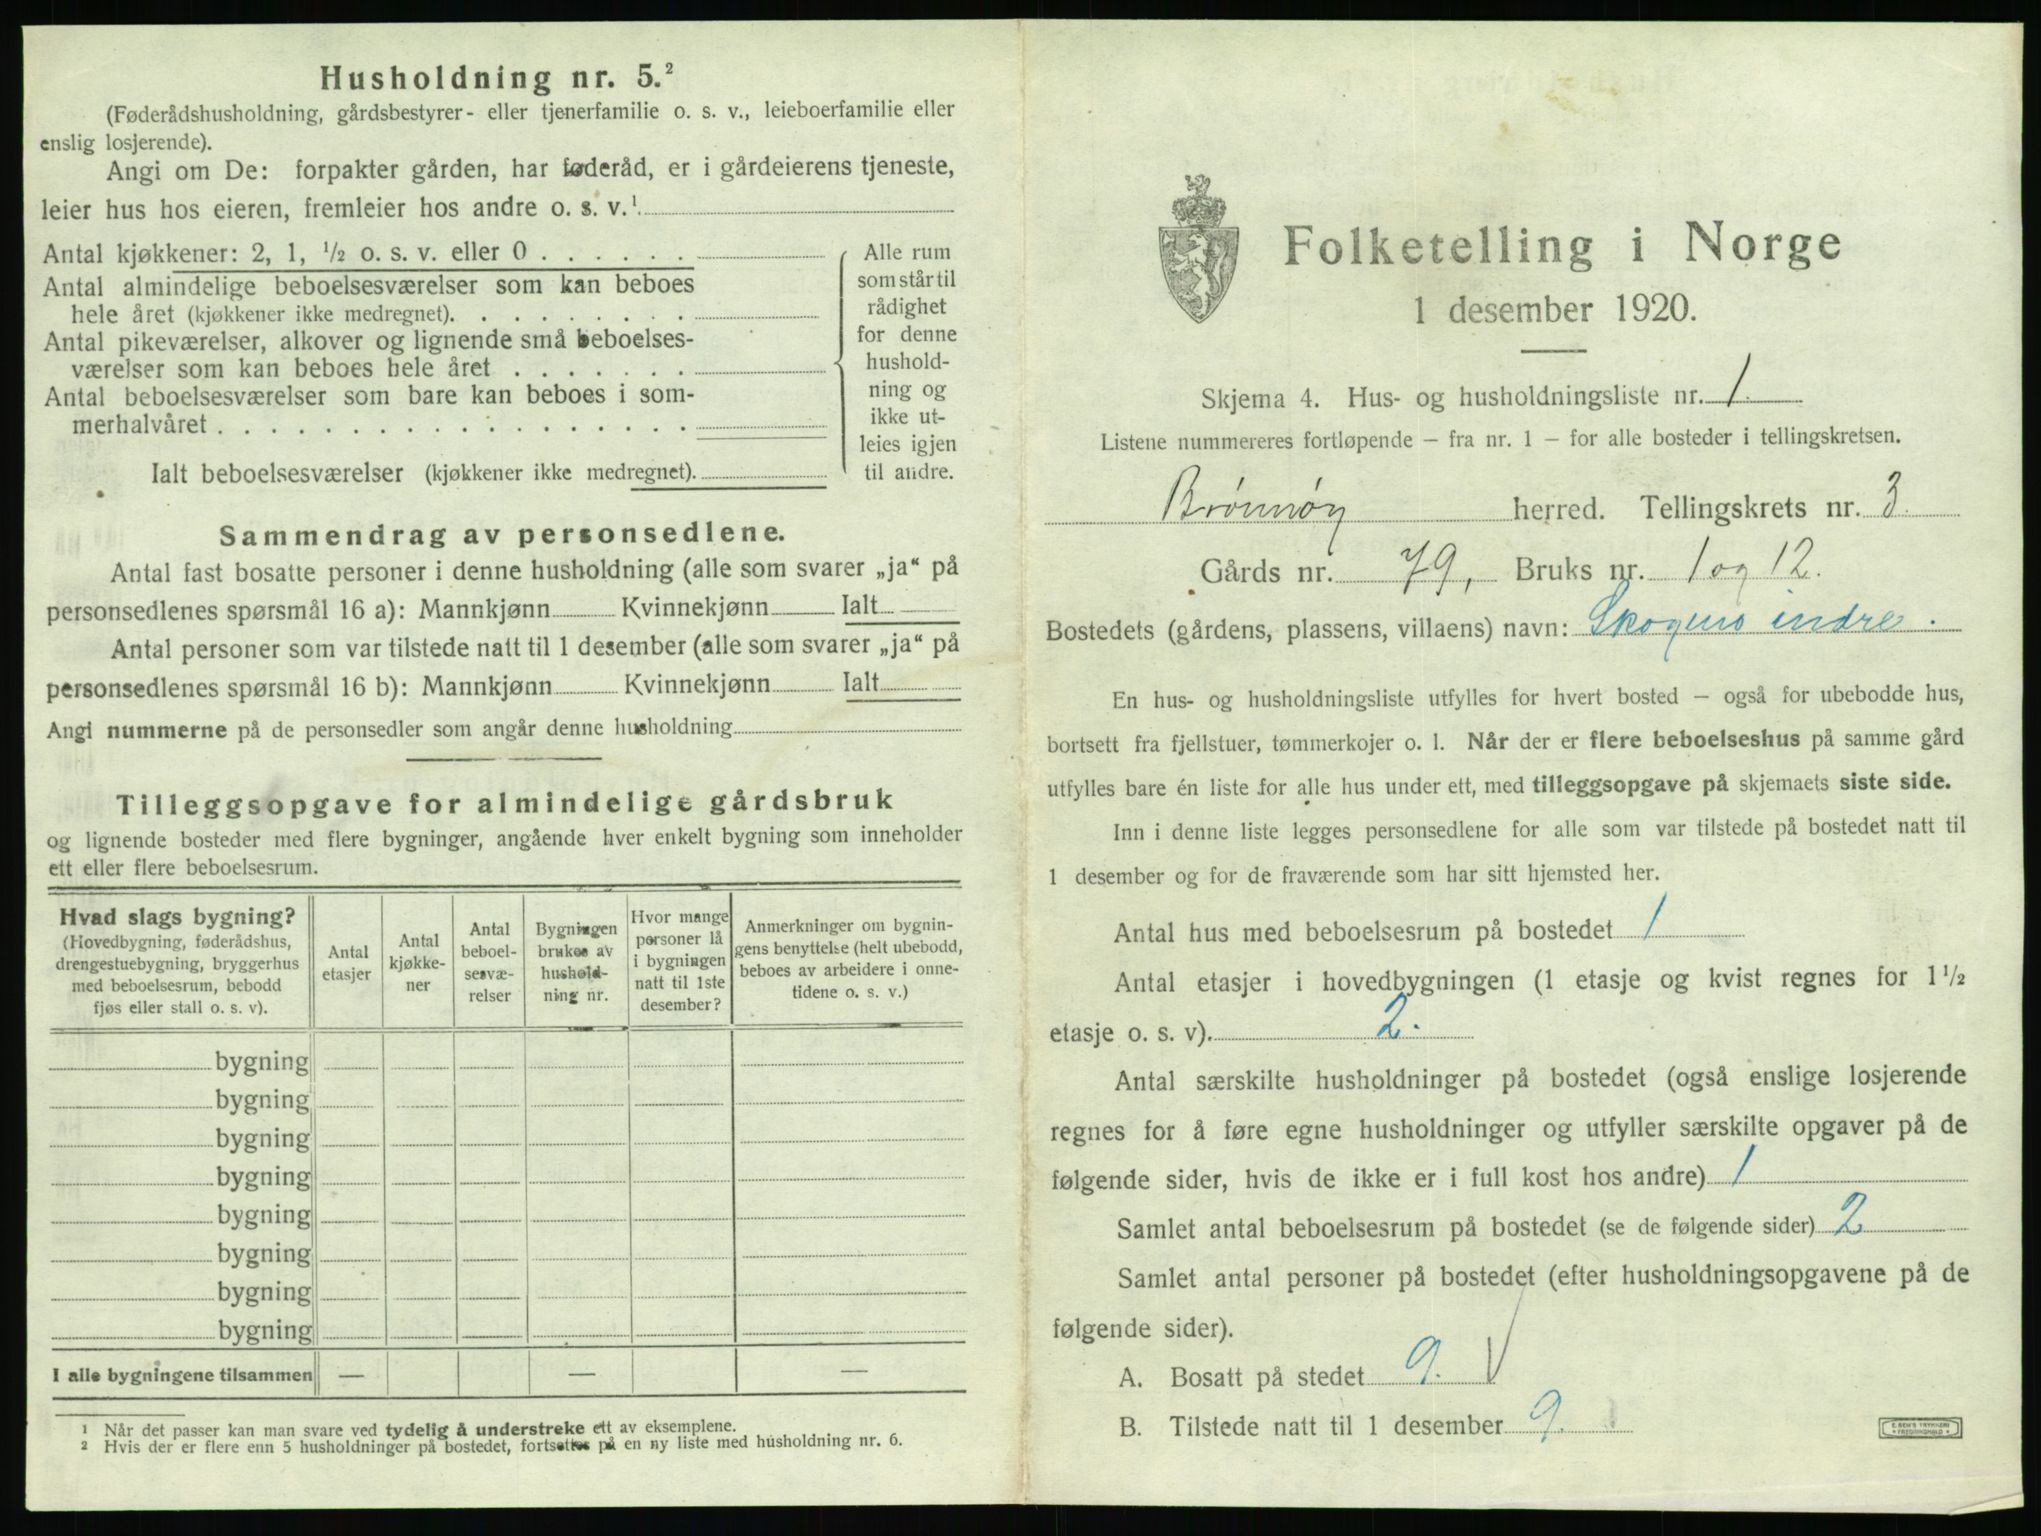 Husholdning nr. 5.²
(Føderådshusholdning, gårdsbestyrer- eller tjenerfamilie o. s. v., leieboerfamilie eller
enslig losjerende).
Angi om De: forpakter gården, har føderåd, er i gårdeierens tjeneste,
leier hus hos eieren, fremleier hos andre o. s. v.¹
Antal kjøkkener: 2, 1, ½ o. s. v. eller 0
Antal almindelige beboelsesværelser som kan beboes
hele året (kjøkkener ikke medregnet).
Antal pikeværelser, alkover og lignende små beboelses-
værelser som kan beboes hele året
Antal beboelsesværelser som bare kan beboes i som-
merhalvåret
Ialt beboelsesværelser (kjøkkener ikke medregnet).
Alle rum
som står til
rådighet
for denne
hushold-
ning og
ikke ut-
leies igjen
til andre.
Sammendrag av personsedlene.
Antal fast bosatte personer i denne husholdning (alle som svarer „ja“ på
personsedlenes spørsmål 16 a): Mannkjønn Kvinnekjønn Ialt
Antal personer som var tilstede natt til 1 desember (alle som svarer „ja“ på
personsedlenes spørsmål 16 b): Mannkjønn Kvinnekjønn Ialt
Angi nummerne på de personsedler som angår denne husholdning
Tilleggsopgave for almindelige gårdsbruk
og lignende bosteder med flere bygninger, angående hver enkelt bygning som inneholder
ett eller flere beboelsesrum.
Hvad slags bygning?
(Hovedbygning, føderådshus,
drengestuebygning, bryggerhus
med beboelsesrum, bebodd
fjøs eller stall o. s. v).
Antal
etasjer
Antal
kjøkke-
ner
Antal
beboel-
sesvæ-
relser
Bygningen
brukes av
hushold-
ning nr.
Hvor mange
personer lå
i bygningen
natt til 1ste
desember?
Anmerkninger om bygnin-
gens benyttelse (helt ubebodd,
beboes av arbeidere i onne-
tidene o. s. v.)
bygning
bygning
bygning
bygning
bygning
bygning
bygning
bygning
I alle bygningene tilsammen — — —
¹ Når det passer kan man svare ved tydelig å understreke ett av eksemplene.
² Hvis der er flere enn 5 husholdninger på bostedet, fortsettes på en ny liste med husholdning nr. 6.
Folketelling i Norge
1 desember 1920.
Skjema 4. Hus- og husholdningsliste nr. 1.
Listene nummereres fortløpende — fra nr. 1 — for alle bosteder i tellingskretsen.
Brønnøy herred. Tellingskrets nr. 3.
Gårds nr. 79, Bruks nr. 1 og 12.
Bostedets (gårdens, plassens, villaens) navn: Skogmo indre.
En hus- og husholdningsliste utfylles for hvert bosted — også for ubebodde hus,
bortsett fra fjellstuer, tømmerkojer o. l. Når der er flere beboelseshus på samme gård
utfylles bare én liste for alle hus under ett, med tilleggsopgave på skjemaets siste side.
Inn i denne liste legges personsedlene for alle som var tilstede på bostedet natt til
1 desember og for de fraværende som har sitt hjemsted her.
Antal hus med beboelsesrum på bostedet 1
Antal etasjer i hovedbygningen (1 etasje og kvist regnes for 1½
etasje o. s. v). 2.
Antal særskilte husholdninger på bostedet (også enslige losjerende
regnes for å føre egne husholdninger og utfyller særskilte opgaver på de
følgende sider, hvis de ikke er i full kost hos andre) 1
Samlet antal beboelsesrum på bostedet (se de følgende sider) 2
Samlet antal personer på bostedet (efter husholdningsopgavene på de
følgende sider).
A. Bosatt på stedet 9.
B. Tilstede natt til 1 desember 9.